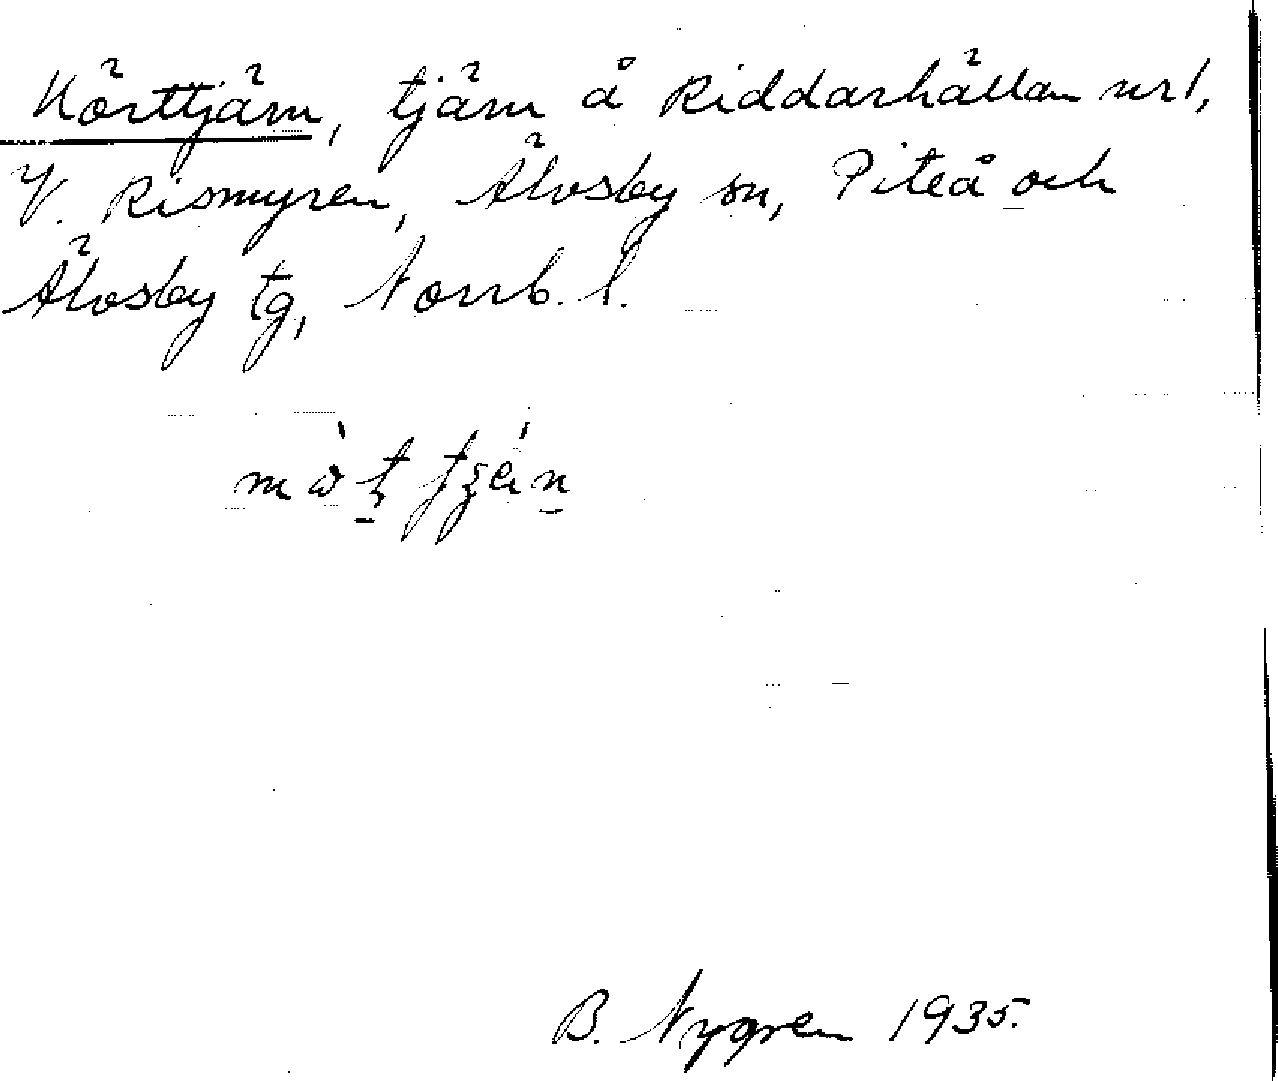 Mörttjärn, tjärn å Riddarhällan nr 1,
V. Rismyren, Älvsby sn, Piteå och
Älvsby tg, Norrb. l.
B. Nygren 1935.